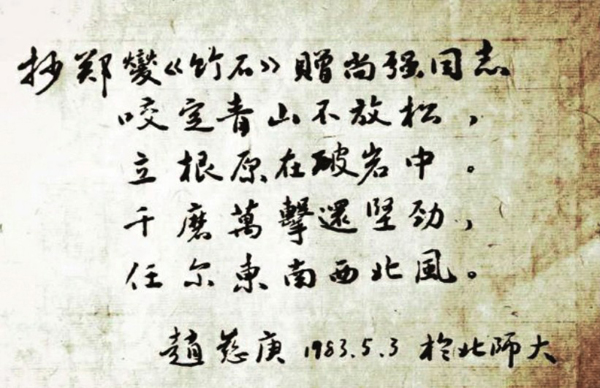 抄郑燮《竹石》赠尚强同志
咬定青山不放松，
立根原在破岩中。
千磨萬擊還堅劲，
任尔東南西北風。
趙慈庚 1983.5.3 於北师大